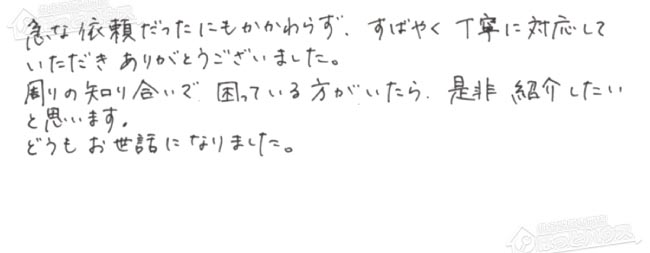 急な依頼だったにもかかわらず、すばやく丁寧に対応して
いただきありがとうございました。
周りの知り合いで困っている方がいたら、是非紹介したい
と思います。
どうもお世話になりました。